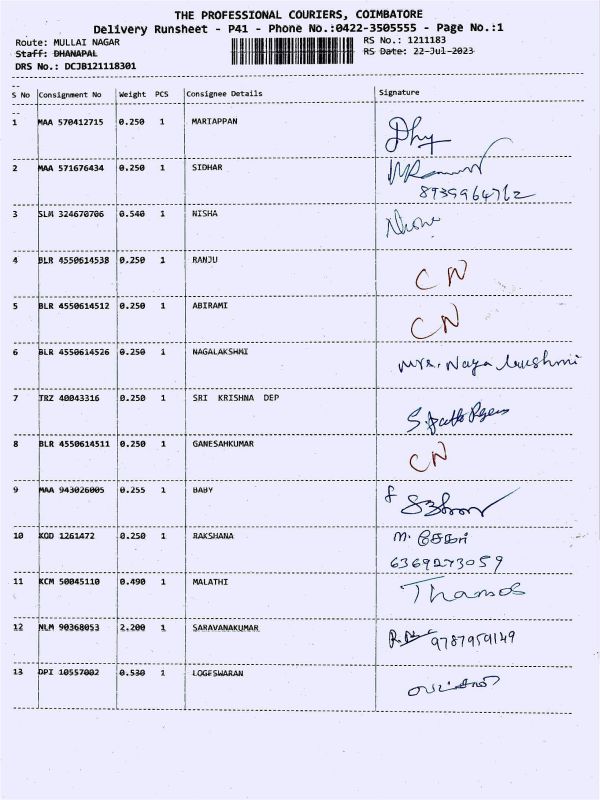 THE PROFESSIONAL COURIERS, COIMBATORE
Delivery Runsheet - P41 - Phone No.:0422-3505555 - Page No.:1
Route: MULLAI NAGAR RS No.: 1211183
Staff: DHANAPAL RS Date: 22-Jul-2023
DRS No.: DCJB121118301
S No Consignment No Weight PCS Consignee Details Signature
1 MAA 570412715 0.250 1 MARIAPPAN
2 MAA 571676434 0.250 1 SIDHAR
8939964762
3 SLM 324670706 0.540 1 NISHA
4 BLR 4550614538 0.250 1 RANJU CN
5 BLR 4550614512 0.250 1 ABIRAMI CN
6 BLR 4550614526 0.250 1 NAGALAKSHMI Mrs. Naga lakshmi
7 TRZ 40043316 0.250 1 SRI KRISHNA DEP
8 BLR 4550614511 0.250 1 GANESAHKUMAR CN
9 MAA 943026005 0.255 1 BABY
10 KOD 1261472 0.250 1 RAKSHANA
6369273059
11 KCM 50045110 0.490 1 MALATHI
12 NLM 90368053 2.200 1 SARAVANAKUMAR 9787959149
13 DPI 10557002 0.530 1 LOGESWARAN